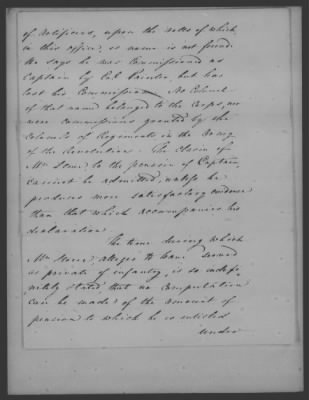 of Artificers, upon the rolls of which,
in this office, his name is not found.
He says he was commissioned as
Captain by Col. but has
lost his Commission. No Colonel
of that name belonged to the Corps, nor
were commissions granted by the
Colonels of Regiments in the Army
of the Revolution. The Claim of
Mr. to the pension of Captain,
cannot be admitted, unless he
produces more satisfactory evidence
than that which accompanies his
declaration.
The time during which
Mr. alleges to have served
as private of infantry, is so indefi-
nitely stated, that no computation
can be made of the amount of
pension to which he is entitled
under